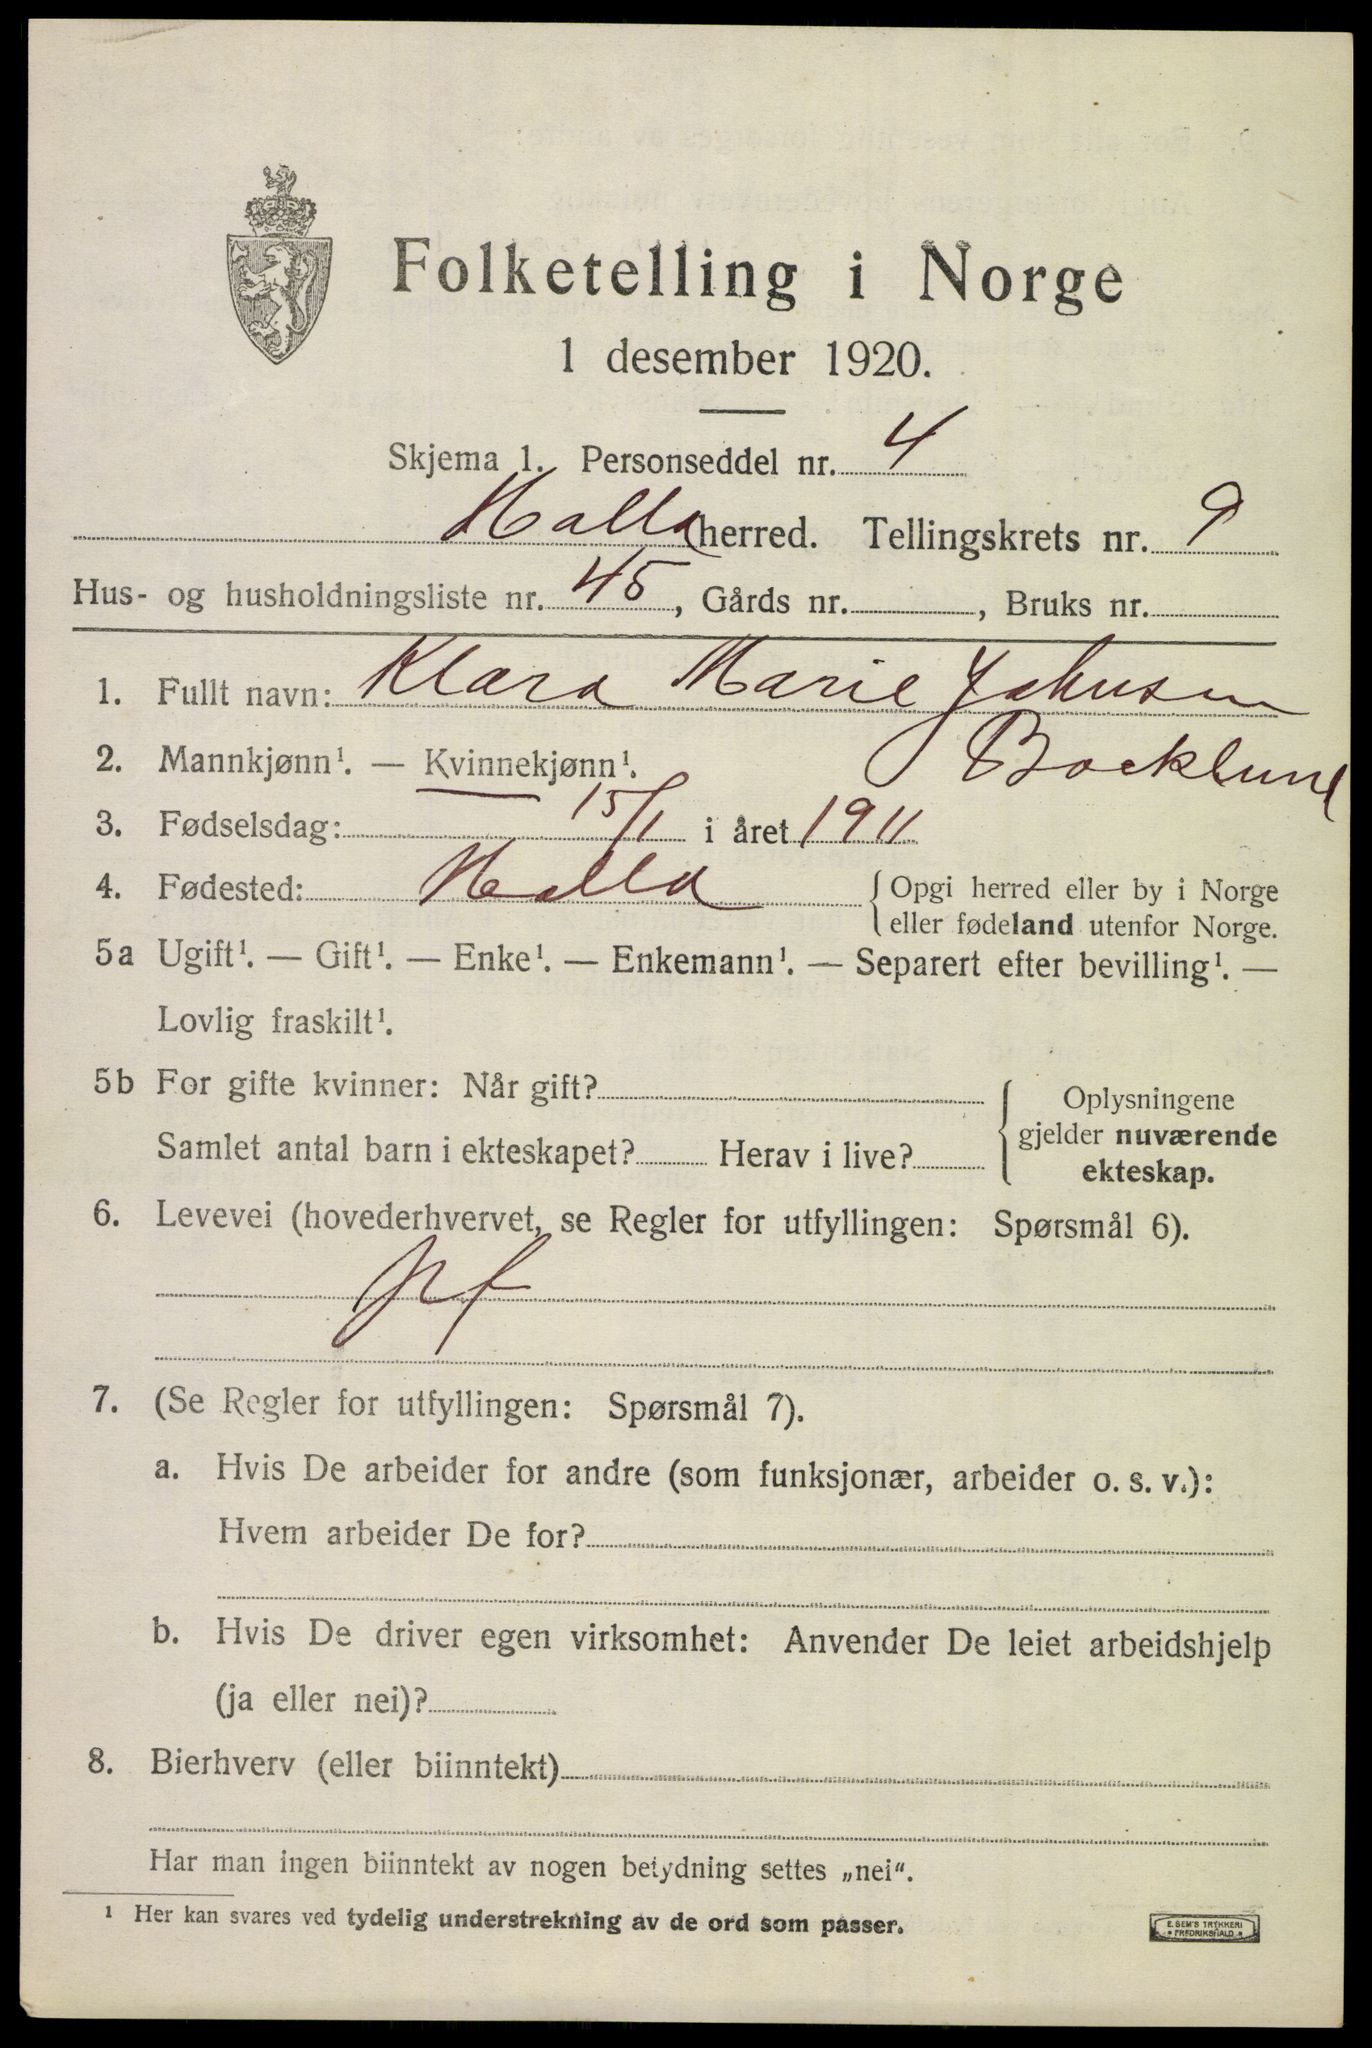 Folketelling i Norge
1 desember 1920.
Skjema 1. Personseddel nr. 4
Holla herred. Tellingskrets nr. 9
Hus- og husholdningsliste nr. 45, Gårds nr. , Bruks nr.
1. Fullt navn: Klara Marie Johnsen
Bocklund
2. Mannkjønn¹. — Kvinnekjønn¹.
3. Fødselsdag: 15/1 i året 1911
4. Fødested: Holla {Opgi herred eller by i Norge
eller fødeland utenfor Norge.
5a Ugift¹. — Gift¹. — Enke¹. — Enkemann¹. — Separert efter bevilling¹. —
Lovlig fraskilt¹.
5b For gifte kvinner: Når gift?
Samlet antal barn i ekteskapet? Herav i live?
Oplysningene
gjelder nuværende
ekteskap.
6. Levevei (hovederhvervet, se Regler for utfyllingen: Spørsmål 6).
7. (Se Regler for utfyllingen: Spørsmål 7).
a. Hvis De arbeider for andre (som funksjonær, arbeider o. s. v.):
Hvem arbeider De for?
b. Hvis De driver egen virksomhet: Anvender De leiet arbeidshjelp
(ja eller nei)?
8. Bierhverv (eller biinntekt)
Har man ingen biinntekt av nogen betydning settes „nei“.
¹ Her kan svares ved tydelig understrekning av de ord som passer.
E. SEM'S TRYKKERI
FREDRIKSHALD